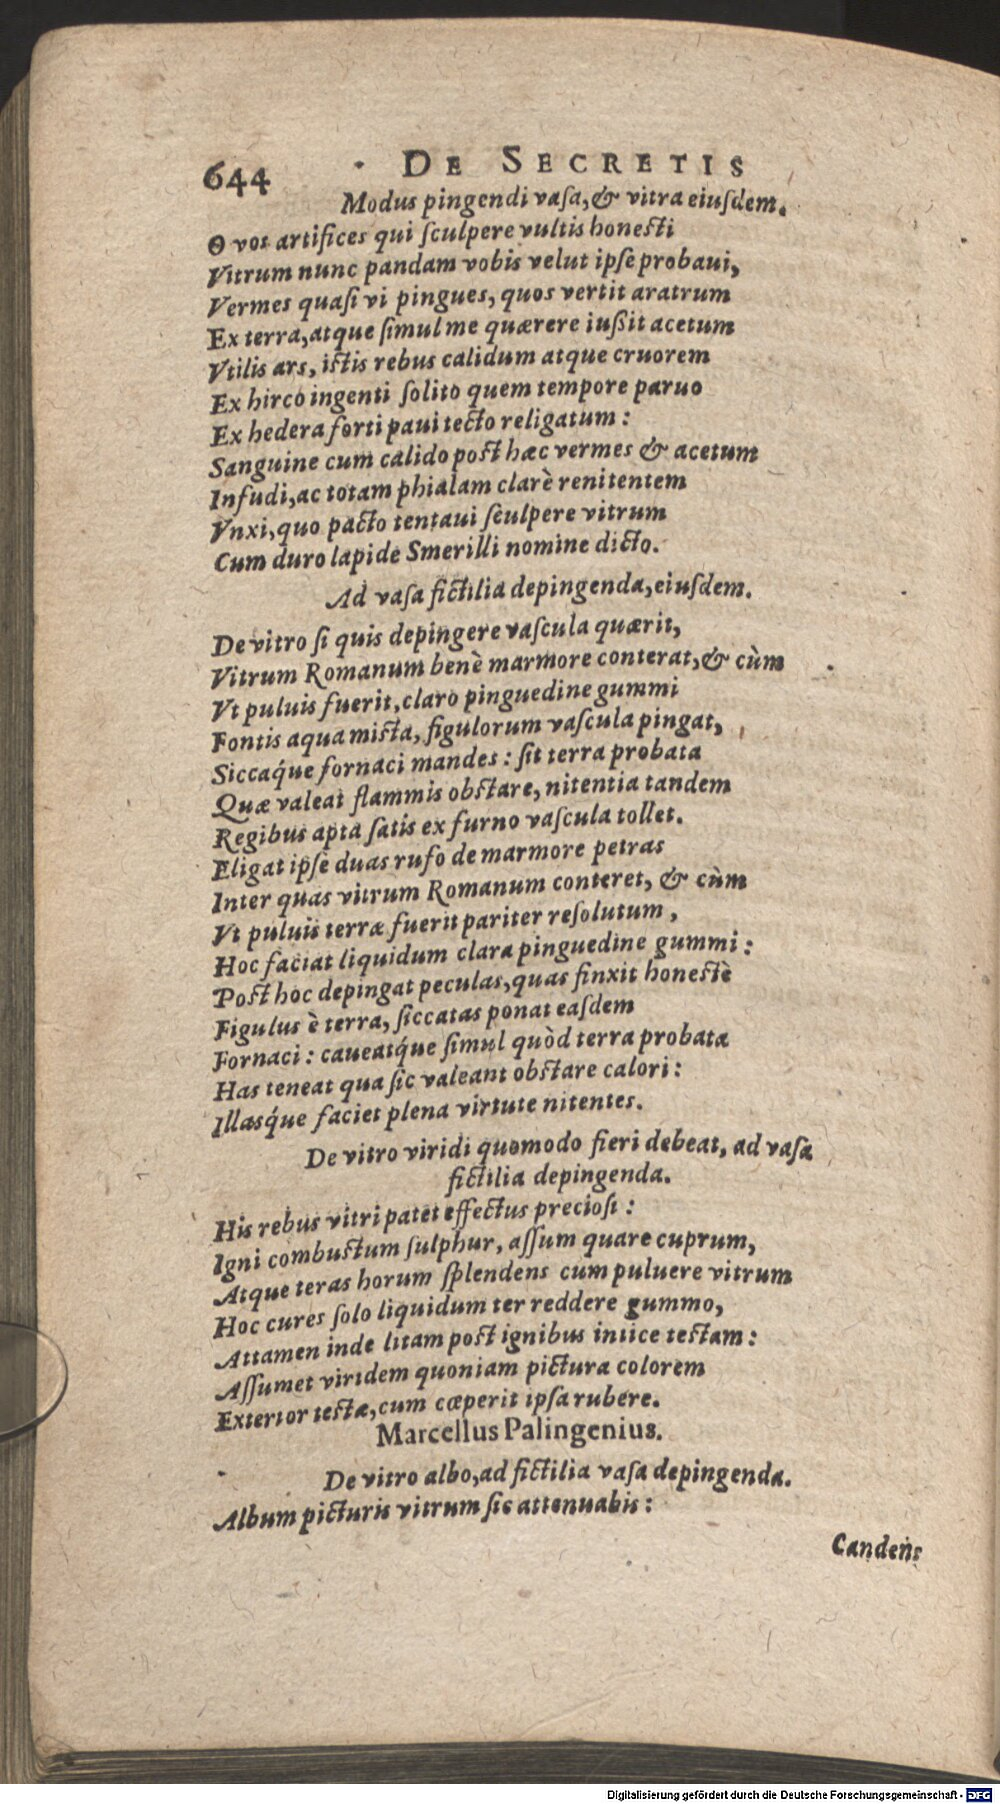 644 DE SECRETIS
Modus pingendi vaſa, & vitra eiuſdem.
O vos artifices qui ſculpere vultis honesti
Vitrum nunc pandam vobis velut ipſe probaui,
Vermes quaſi vi pingues, quos vertit aratrum
Ex terra, atque ſimul me quærere iußit acetum
Vtilis ars, istis rebus calidum atque cruorem
Ex hirco ingenti ſolito quem tempore paruo
Ex hedera forti paui tecto religatum:
Sanguine cum calido post hæc vermes & acetum
Infudi, ac totam phialam clarè renitentem
Vnxi, quo pacto tentaui ſculpere vitrum
Cum duro lapide Smerilli nomine dicto.
Ad vaſa fictilia depingenda, eiuſdem.
De vitro ſi quis depingere vaſcula quærit,
Vitrum Romanum benè marmore conterat, & cùm
Vt puluis fuerit, claro pinguedine gummi
Fontis aqua mista, figulorum vaſcula pingat,
Siccaq́ue fornaci mandes: ſit terra probata
Quæ valeat flammis obstare, nitentia tandem
Regibus apta ſatis ex furno vaſcula tollet.
Eligat ipſe duas rufo de marmore petras
Inter quas vitrum Romanum conteret, & cùm
Vt puluis terræ fuerit pariter reſolutum,
Hoc faciat liquidum clara pinguedine gummi:
Post hoc depingat peculas, quas finxit honestè
Figulus è terra, ſiccatas ponat eaſdem
Fornaci: caueatq́ue ſimul quòd terra probata
Has teneat qua ſic valeant obstare calori:
Illasq́ue faciet plena virtute nitentes.
De vitro viridi quomodo fieri debeat, ad vaſa
fictilia depingenda.
His rebus vitri patet effectus precioſi:
Igni combustum ſulphur, aſſum quare cuprum,
Atque teras horum ſplendens cum puluere vitrum
Hoc cures ſolo liquidum ter reddere gummo,
Attamen inde litam post ignibus iniice testam:
Aſſumet viridem quoniam pictura colorem
Exterior testæ, cum cœperit ipſa rubere.
Marcellus Palingenius.
De vitro albo, ad fictilia vaſa depingenda.
Album picturis vitrum ſic attenuabis:
Candens
Digitalisierung gefördert durch die Deutsche Forschungsgemeinschaft - DFG